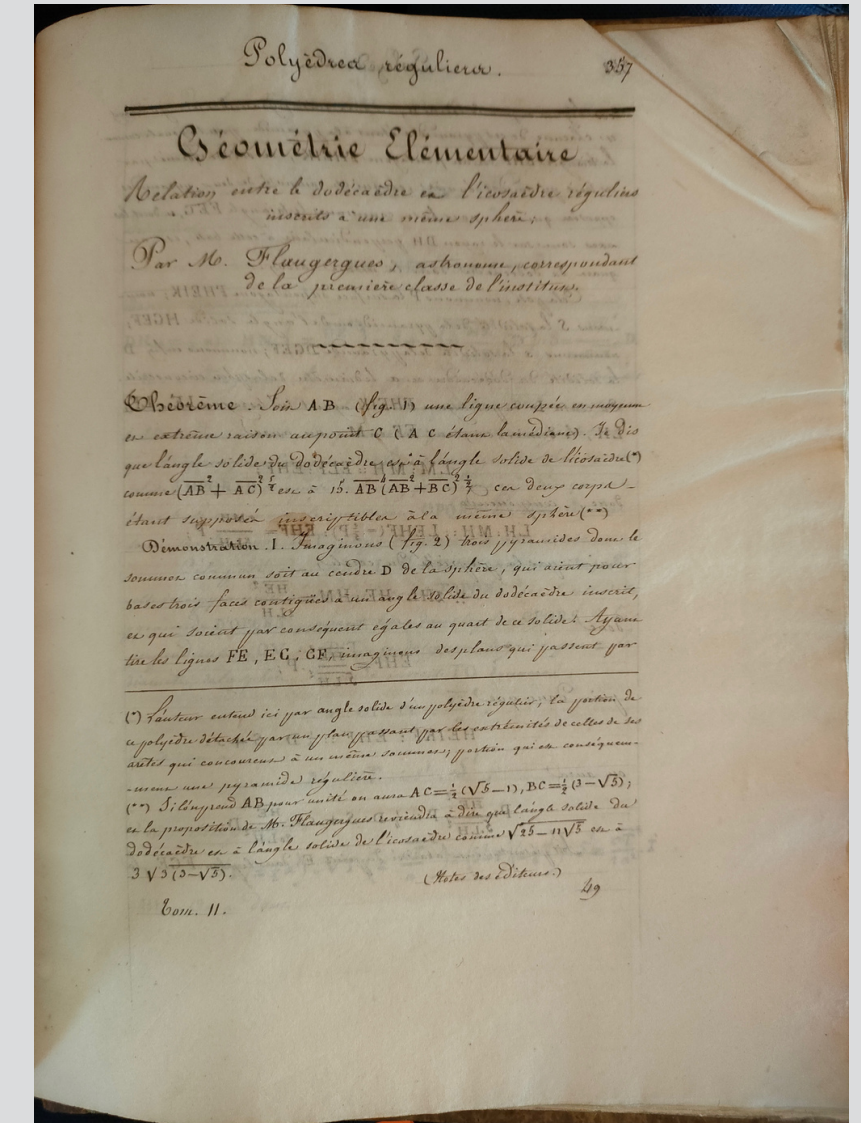 Polyèdres réguliers.
357
Géométrie Elémentaire
Relation entre le dodécaèdre et l'icosaèdre réguliers
inscrits à une même sphère;
Par M. Flaugergues, astronome, correspondant
de la première classe de l'institut.
Théorème. Soit AB (fig. 1) une ligne coupée en moyenne
et extrême raison au point C (AC étant la médiane). Je dis
que l'angle solide du dodécaèdre est à l'angle solide de l'icosaèdre (*)
comme (AB² + AC²)^5/2 est à 15. AB⁴(AB² + BC²)^1/2, ces deux corps
étant supposés inscriptibles à la même sphère (**)
Démonstration. I. Imaginons (fig. 2) trois pyramides dont le
sommet commun soit au centre D de la sphère, qui aient pour
bases trois faces contigües à un angle solide du dodécaèdre inscrit,
et qui soient par conséquent égales au quart de ce solide. Ayant
tiré les lignes FE, EG, GF, imaginons des plans qui passent par
(*) L'auteur entend ici par angle solide d'un polyèdre régulier, la portion de
ce polyèdre détachée par un plan passant par les extrémités de celles de ses
arêtes qui concourent à un même sommet; portion qui est conséquem-
-ment une pyramide régulière.
(**) Si l'on prend AB pour unité on aura AC=½(√5−1), BC=½(3−√5);
et la proposition de M. Flaugergues reviendra à dire que l'angle solide du
dodécaèdre est à l'angle solide de l'icosaèdre comme √25−11√5 est à
3√3(3−√5).
(Notes des éditeurs.)
49
Tom. II.